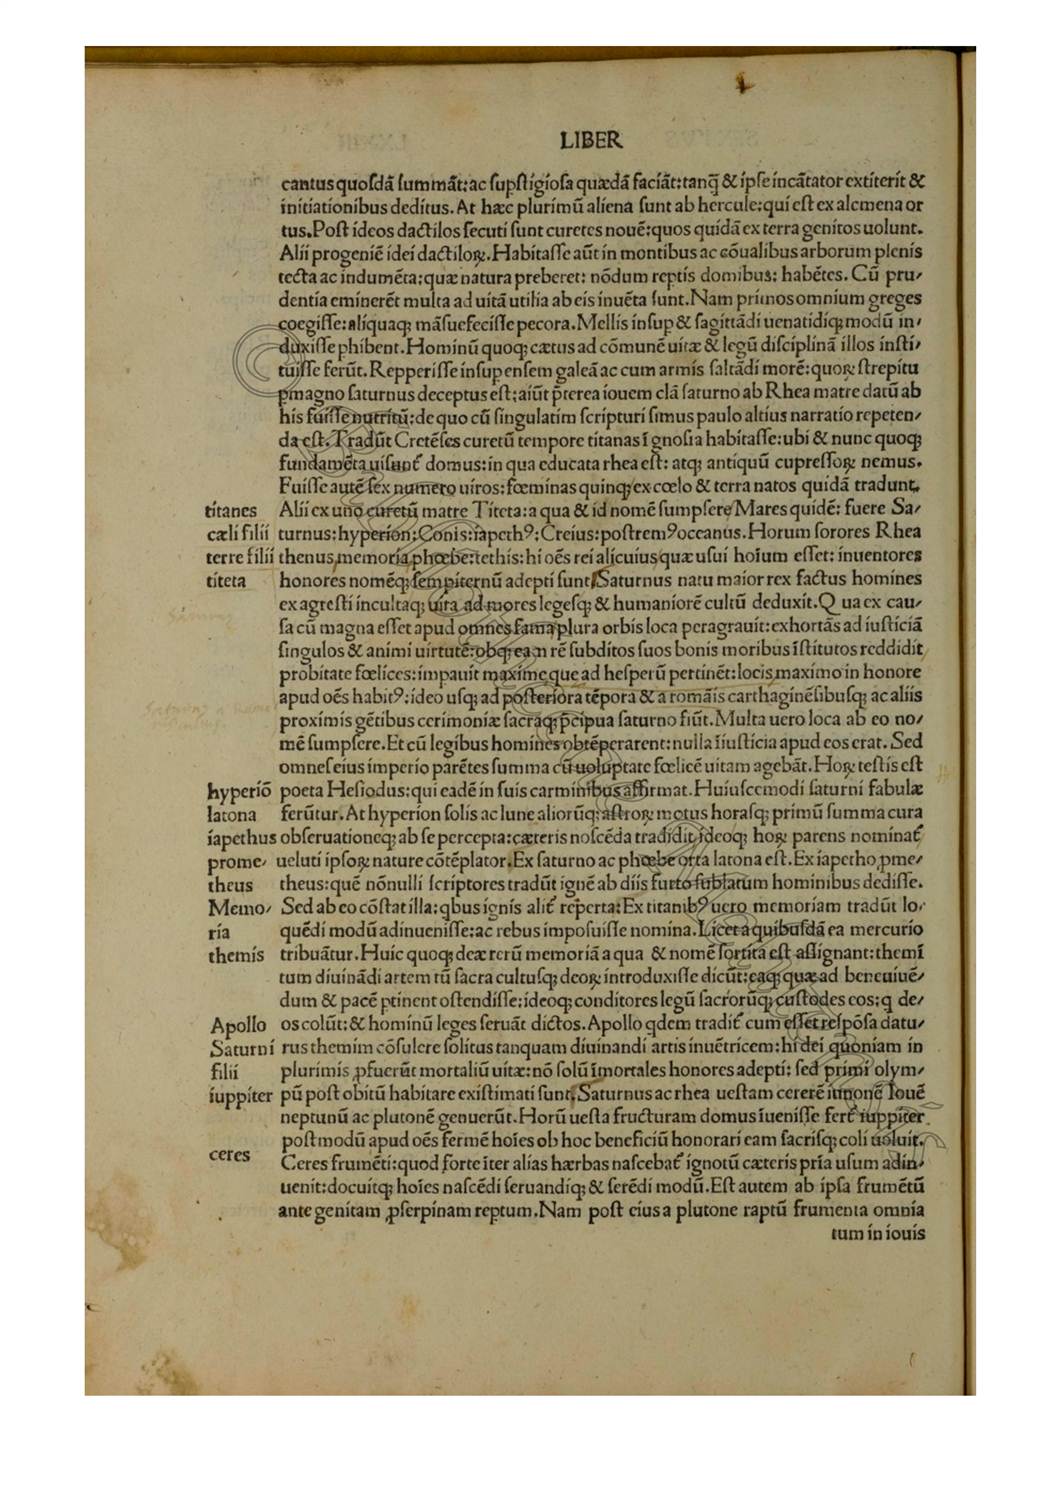 LIBER
cantus quosdā summāt: ac supstigiosa quædā faciāt: tanq̄ & ipse incātator extiterit &
initiationibus deditus. At hæc plurimū aliena sunt ab hercule: qui est ex alcmena or
tus. Post ideos dactilos secuti sunt curetes nouē: quos quidā ex terra genitos uolunt.
Alii progeniē idei dactiloꝝ. Habitasse aūt in montibus ac cōualibus arborum plenis
tecta ac indumēta: quæ natura preberet: nōdum reptis domibus: habētes. Cū pru/
dentia eminerēt multa ad uitā utilia ab eis inuēta sunt. Nam primos omnium greges
coegisse: aliquaqꝫ māsuefecisse pecora. Mellis insup & sagittādi uenatidiqꝫ modū in/
duxisse phibent. Hominū quoqꝫ cætus ad cōmunē uitæ & legū disciplinā illos insti/
tuisse ferūt. Repperisse insup ensem galeā ac cum armis saltādi morē: quoꝝ strepitu
pmagno saturnus deceptus est: aiūt p̄terea iouem clā saturno ab Rhea matre datū ab
his fuisse nutritū: de quo cū singulatim scripturi simus paulo altius narratio repeten/
da est. Tradūt Cretēses curetū tempore titanas ī gnosia habitasse: ubi & nunc quoqꝫ
fundamēta uisunt᷑ domus: in qua educata rhea est: atqꝫ antiquū cupressoꝝ nemus.
Fuisse autē sex numero uiros: fœminas quinqꝫ ex cœlo & terra natos quidā tradunt.
titanes Alii ex uno curetū matre Titeta: a qua & id nomē sumpsere Mares quidē: fuere Sa/
cæli filii turnus: hyperion: Conis: iapethꝰ: Creius: postremꝰ oceanus. Horum sorores Rhea
terre filii thenus, memoria phœbe: tethis: hi oēs rei alicuius quæ usui hoīum esset: inuentores
titeta honores nomēqꝫ sempiternū adepti sunt. Saturnus natu maior rex factus homines
ex agresti incultaqꝫ uita ad mores legesqꝫ & humaniorē cultū deduxit. Qua ex cau/
sa cū magna esset apud omnes fama plura orbis loca peragrauit: exhortās ad iusticiā
singulos & animi uirtutē: obqꝫ eam rē subditos suos bonis moribus īstitutos reddidit
probitate fœlices: impauit maxime que ad hesperū pertinēt: locis maximo in honore
apud oēs habitꝰ: ideo usqꝫ ad posteriora tēpora & a romāis carthaginēsibusqꝫ ac aliis
proximis gētibus cerimoniæ sacraqꝫ p̄cipua saturno fiūt. Multa uero loca ab eo no/
mē sumpsere. Et cū legibus homines obtēperarent: nulla īiusticia apud eos erat. Sed
omnes eius imperio parētes summa cū uoluptate fœlicē uitam agebāt. Hoꝝ testis est
hyperiō poeta Hesiodus: qui eadē in suis carminibus affirmat. Huiuscemodi saturni fabulæ
latona ferūtur. At hyperion solis ac lune aliorūqꝫ astroꝝ motus horasqꝫ primū summa cura
iapethus obseruationeqꝫ ab se percepta: cæteris noscēda tradidit ideoqꝫ hoꝝ parens nominat᷑
prome/ ueluti ipsoꝝ nature cōtēplator. Ex saturno ac phœbe orta latona est. Ex iapetho ꝓme/
theus theus: quē nōnulli scriptores tradūt ignē ab diis furto sublatum hominibus dedisse.
Memo/ Sed ab eo cōstat illa: qbus ignis alit᷑ reperta: Ex titanibꝰ uero memoriam tradūt lo/
ria quēdi modū adinuenisse: ac rebus imposuisse nomina. Licet a quibusdā ea mercurio
themis tribuātur. Huic quoqꝫ deæ rerū memoriā a qua & nomē sortita est assignant: themī
tum diuinādi artem tū sacra cultusqꝫ deoꝝ introduxisse dicūt: eaqꝫ quæ ad bene uiuē/
dum & pacē ꝑtinent ostendisse: ideoqꝫ conditores legū sacrorūqꝫ custodes eos: q de/
Apollo os colūt: & hominū leges seruāt dictos. Apollo qdem tradit᷑ cum esset respōsa datu/
Saturni rus themim cōsulere solitus tanquam diuinandi artis inuētricem: hi dei quoniam in
filii plurimis ꝓfuerūt mortaliū uitæ: nō solū īmortales honores adepti: sed primi olym/
iuppiter pū post obitū habitare existimati sunt. Saturnus ac rhea uestam cererē iunonē Iouē
neptunū ac plutonē genuerūt. Horū uesta structuram domus īuenisse fert᷑ iuppiter
postmodū apud oēs fermē hoīes ob hoc beneficiū honorari eam sacrisqꝫ coli uoluit.
ceres Ceres frumēti: quod forte īter alias hærbas nascebat᷑ ignotū cæteris pria usum adin/
uenit: docuitqꝫ hoīes nascēdi seruandiqꝫ & serēdi modū. Est autem ab ipsa frumētū
ante genitam ꝓserpinam reptum. Nam post eius a plutone raptū frumenta omnia
tum in iouis